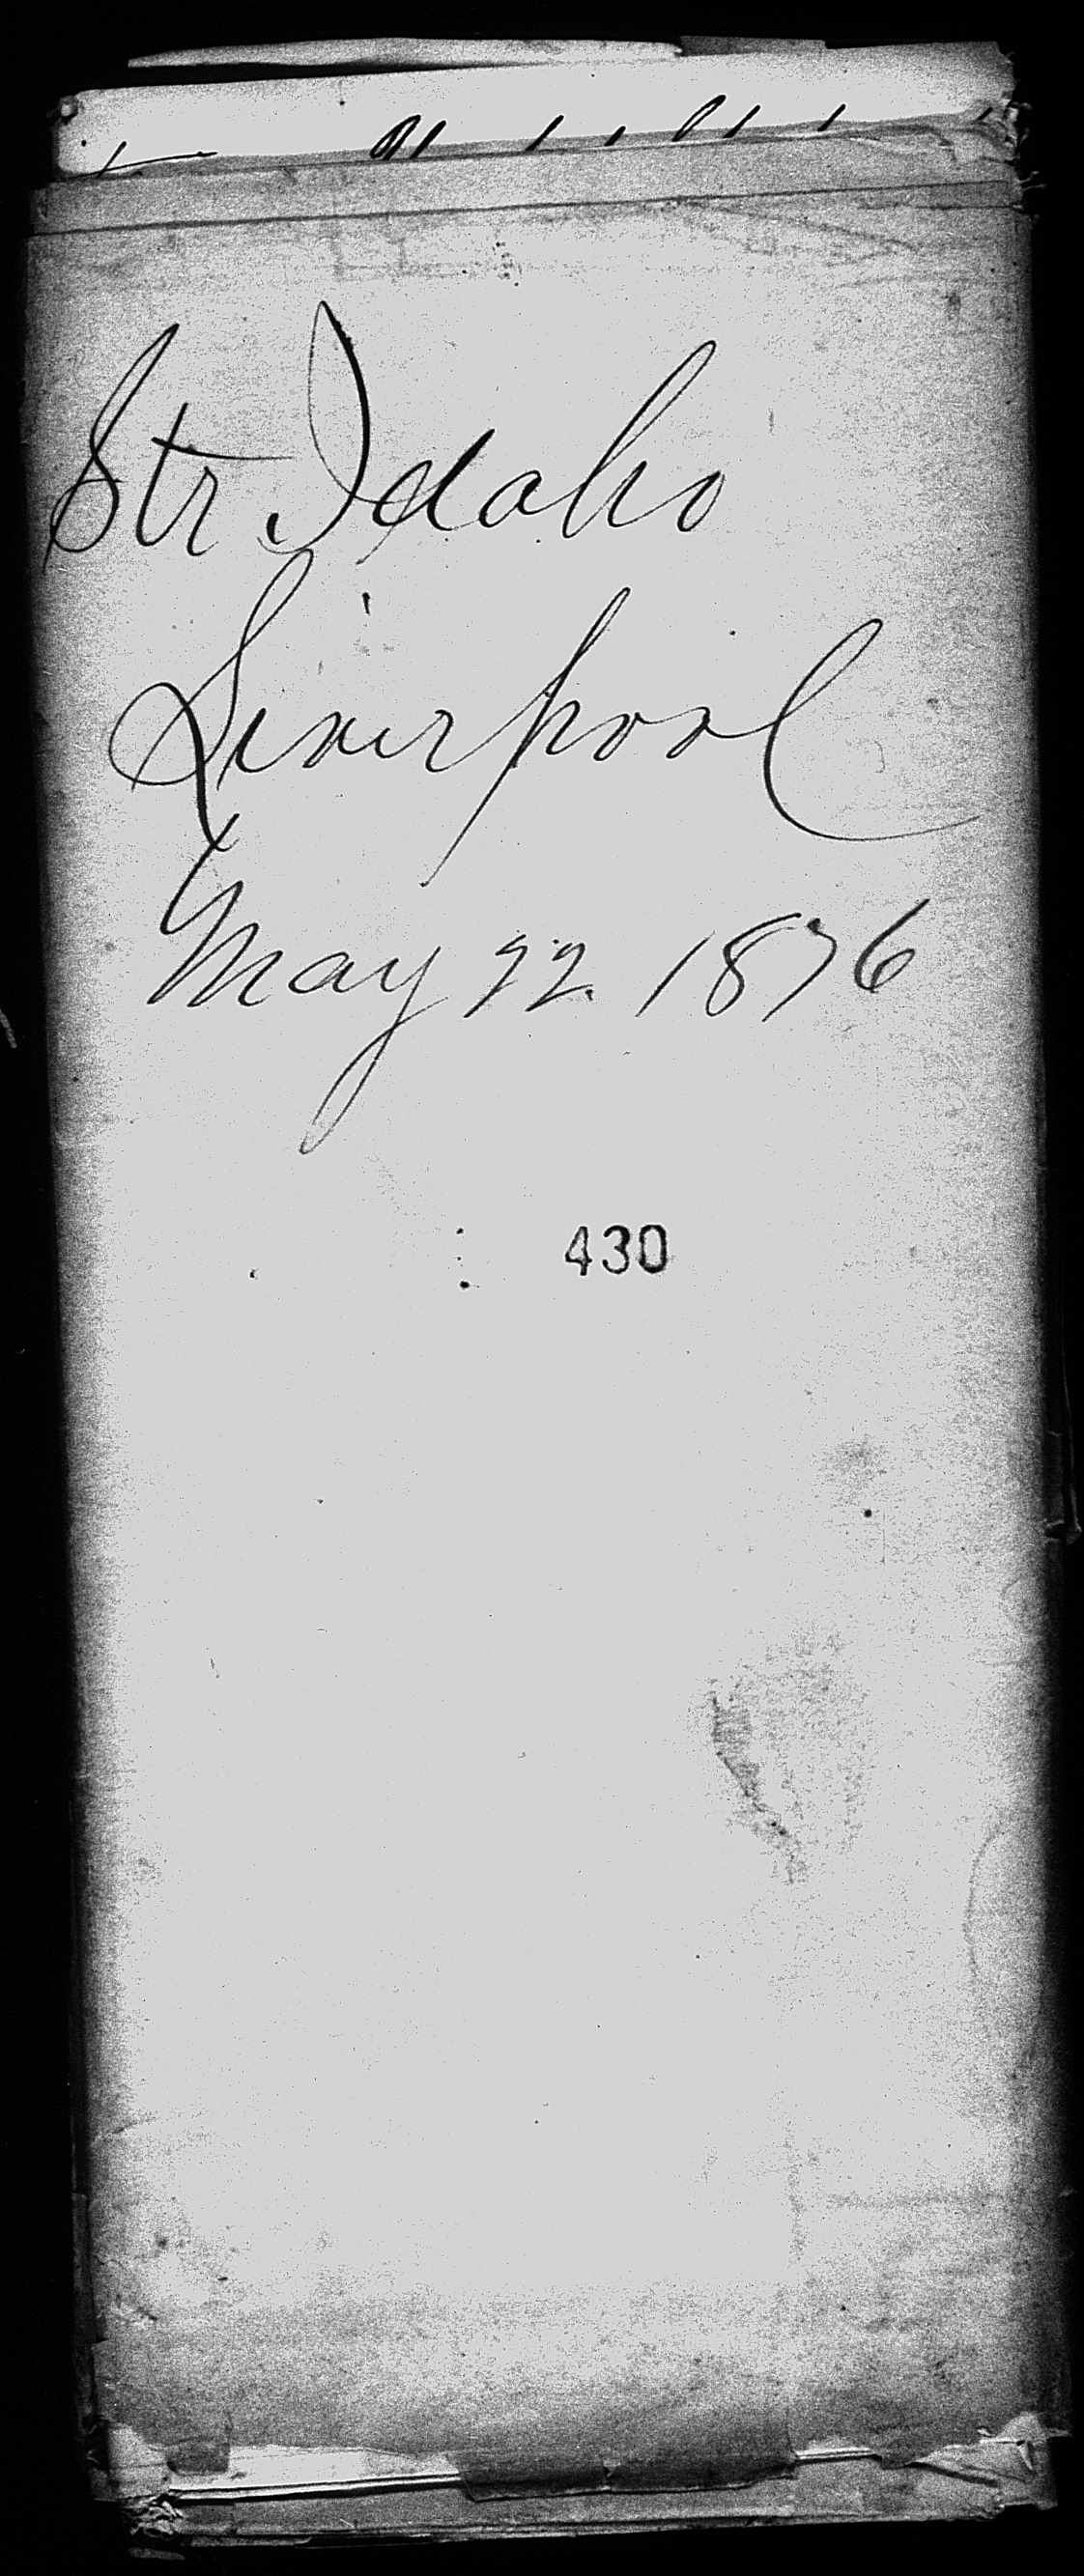 Str. Idaho
Liverpool
May 22. 1876
430